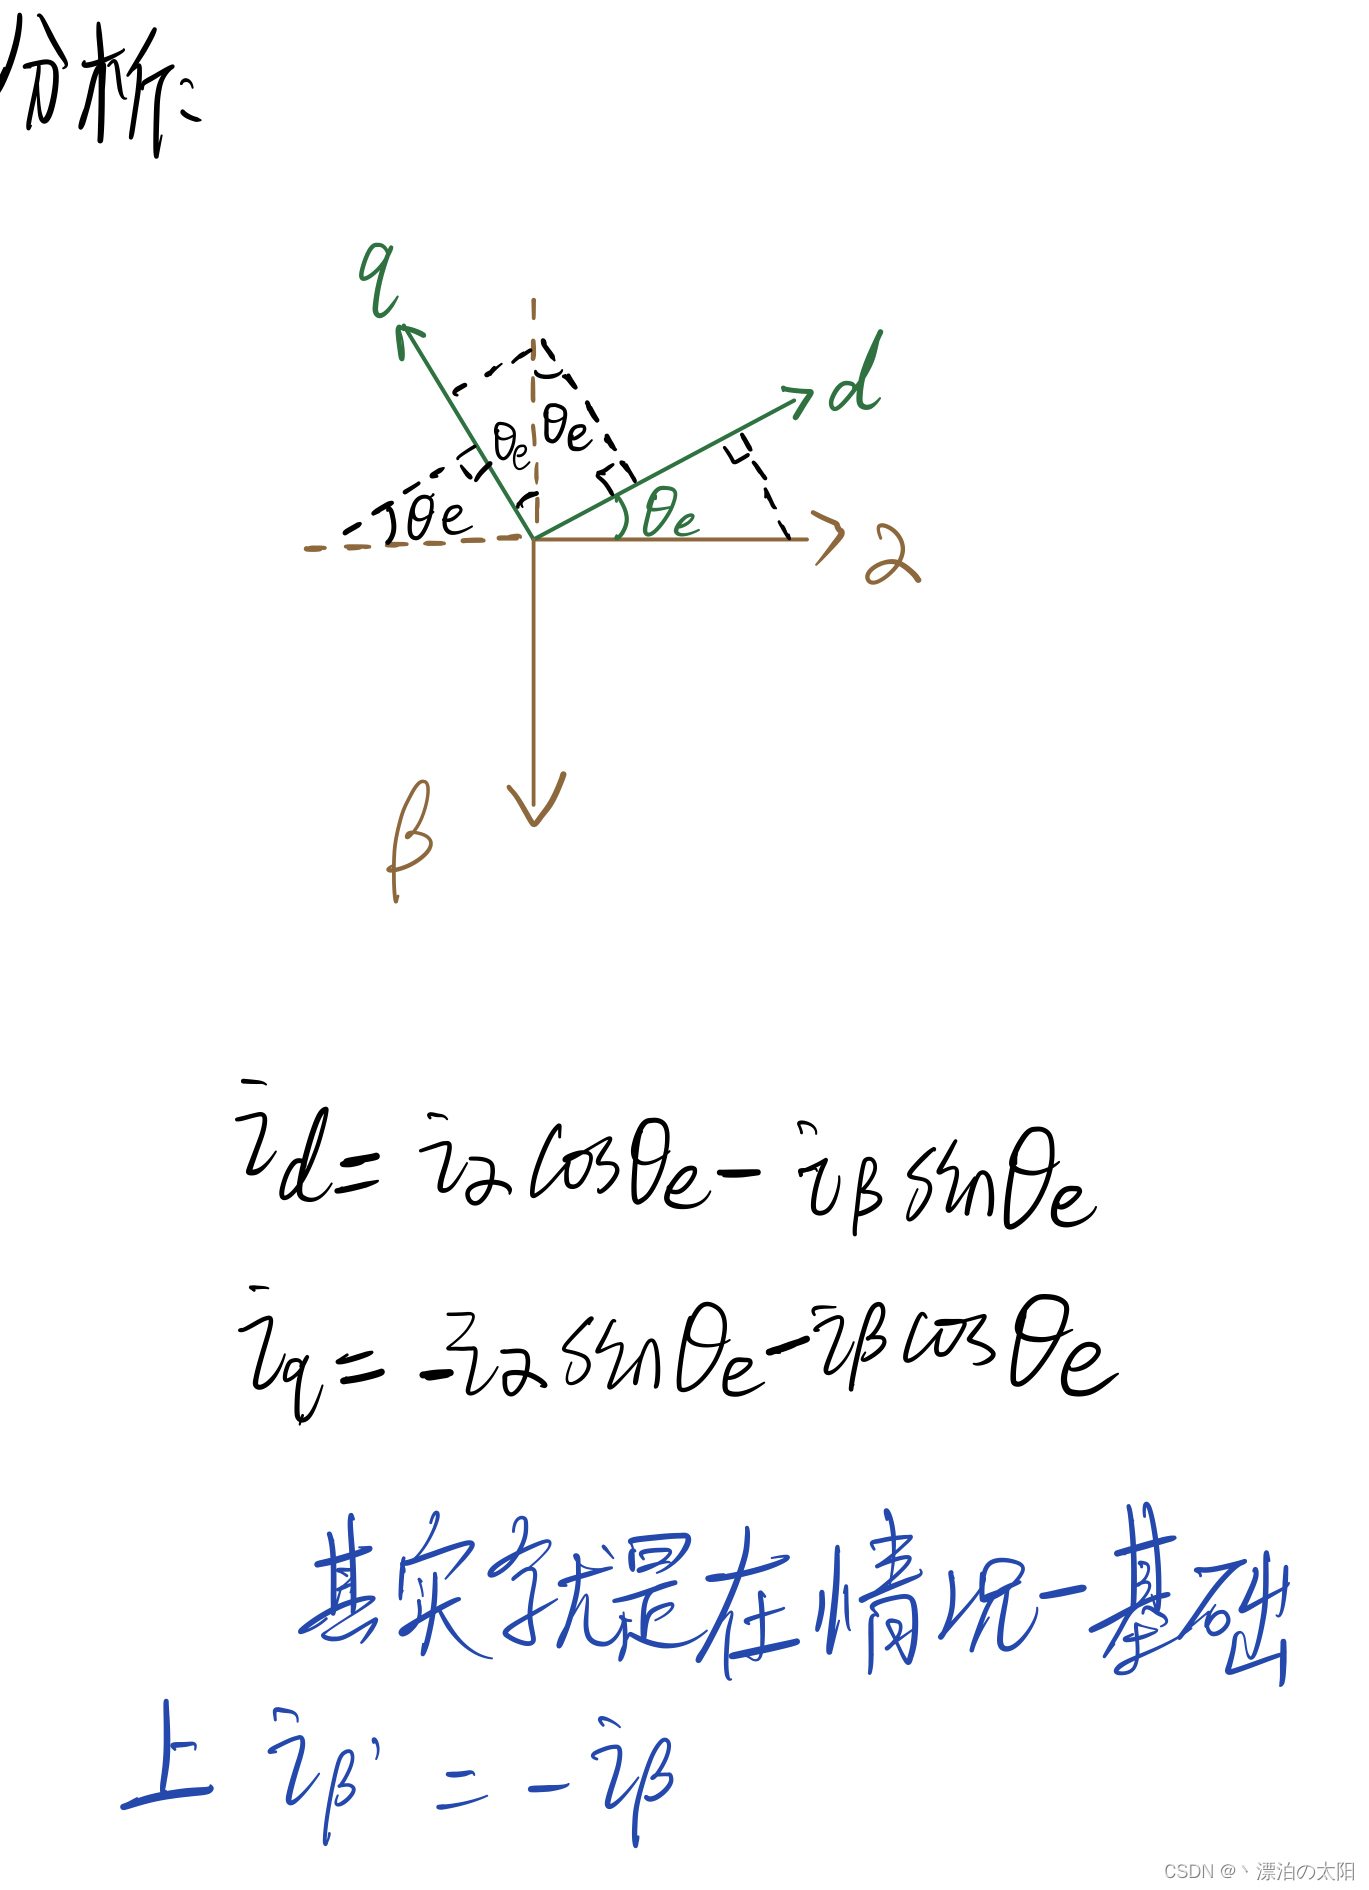 分析:
q
d
θe
θe
θe
θe
α
β
id = iα cosθe - iβ sinθe
iq = -iα sinθe - iβ cosθe
其实就是在情况一基础
上 iβ' = -iβ
CSDN @丶漂泊の太阳